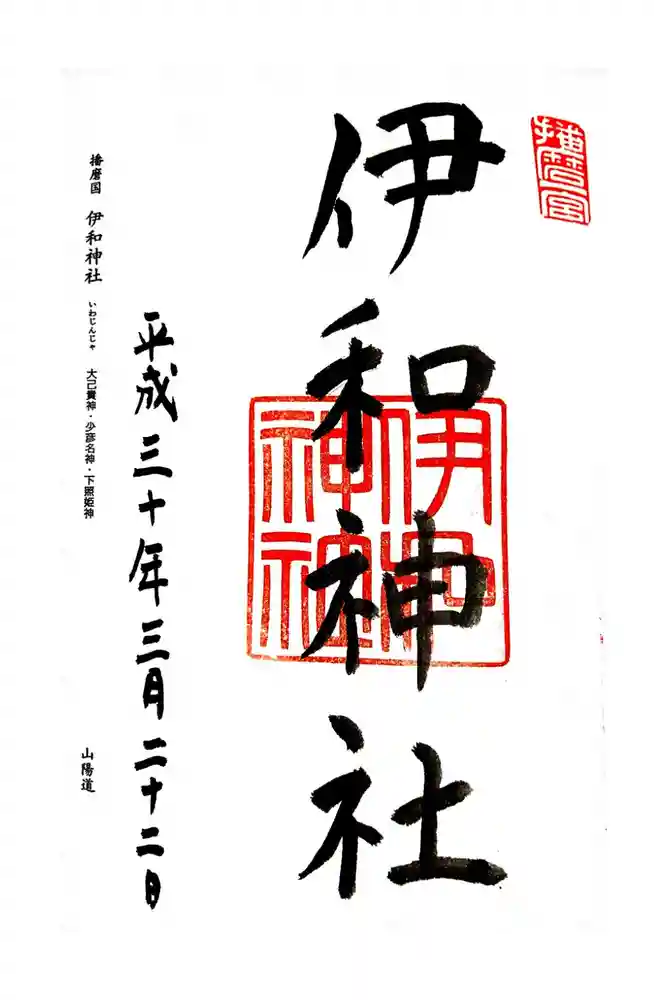 播磨宮
伊和神社
伊和
神社
平成三十年三月二十二日
播磨国 伊和神社 いわじんじゃ 大己貴神・少彦名神・下照姫神
山陽道